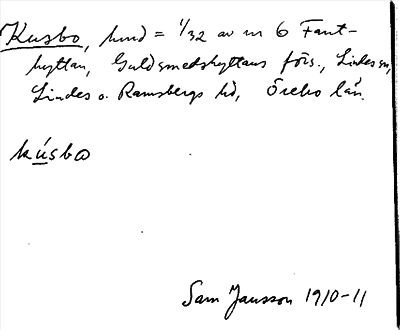 Kusbo, hmd = 1/32 av nr 6 Fant-
hyttan, Guldsmedshyttans förs., Lindes sn,
Lindes o. Ramsbergs hd, Örebo län.
kúsbo
Sam Jansson 1910-11